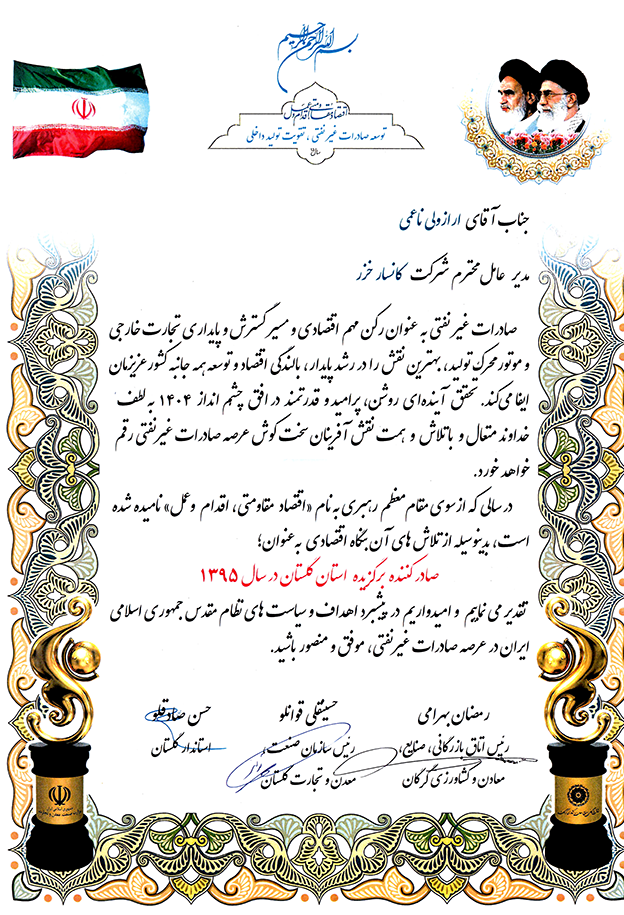 بسم الله الرحمن الرحیم
اقتصاد مقاومتی، اقدام و عمل
توسعه صادرات غیرنفتی، تقویت تولید داخلی
جناب آقای ارازولی ناعمی
مدیر عامل محترم شرکت کانسار خزر
صادرات غیرنفتی به عنوان رکن مهم اقتصادی و مسیر گسترش و پایداری تجارت خارجی
و موتور محرک تولید، بهترین نقش را در رشد پایدار، بالندگی اقتصاد و توسعه همه جانبه کشور عزیزمان
ایفا می‌کند. تحقق آینده‌ای روشن، پرامید و قدرتمند در افق چشم انداز ۱۴۰۴ به لطف
خداوند متعال و با تلاش و همت نقش آفرینان سخت کوش عرصه صادرات غیرنفتی رقم
خواهد خورد.
در سالی که از سوی مقام معظم رهبری به نام «اقتصاد مقاومتی، اقدام و عمل» نامیده شده
است، بدینوسیله از تلاش های آن بنگاه اقتصادی به‌عنوان؛
صادر کننده برگزیده استان گلستان در سال ۱۳۹۵
تقدیر می نماییم و امیدواریم در پیشبرد اهداف و سیاست های نظام مقدس جمهوری اسلامی
ایران در عرصه صادرات غیرنفتی، موفق و منصور باشید.
رمضان بهرامی حسینقلی قوانلو حسن صادقلو
رئیس اتاق بازرگانی، صنایع، رئیس سازمان صنعت، استاندار گلستان
معادن و کشاورزی گرگان معدن و تجارت گلستان